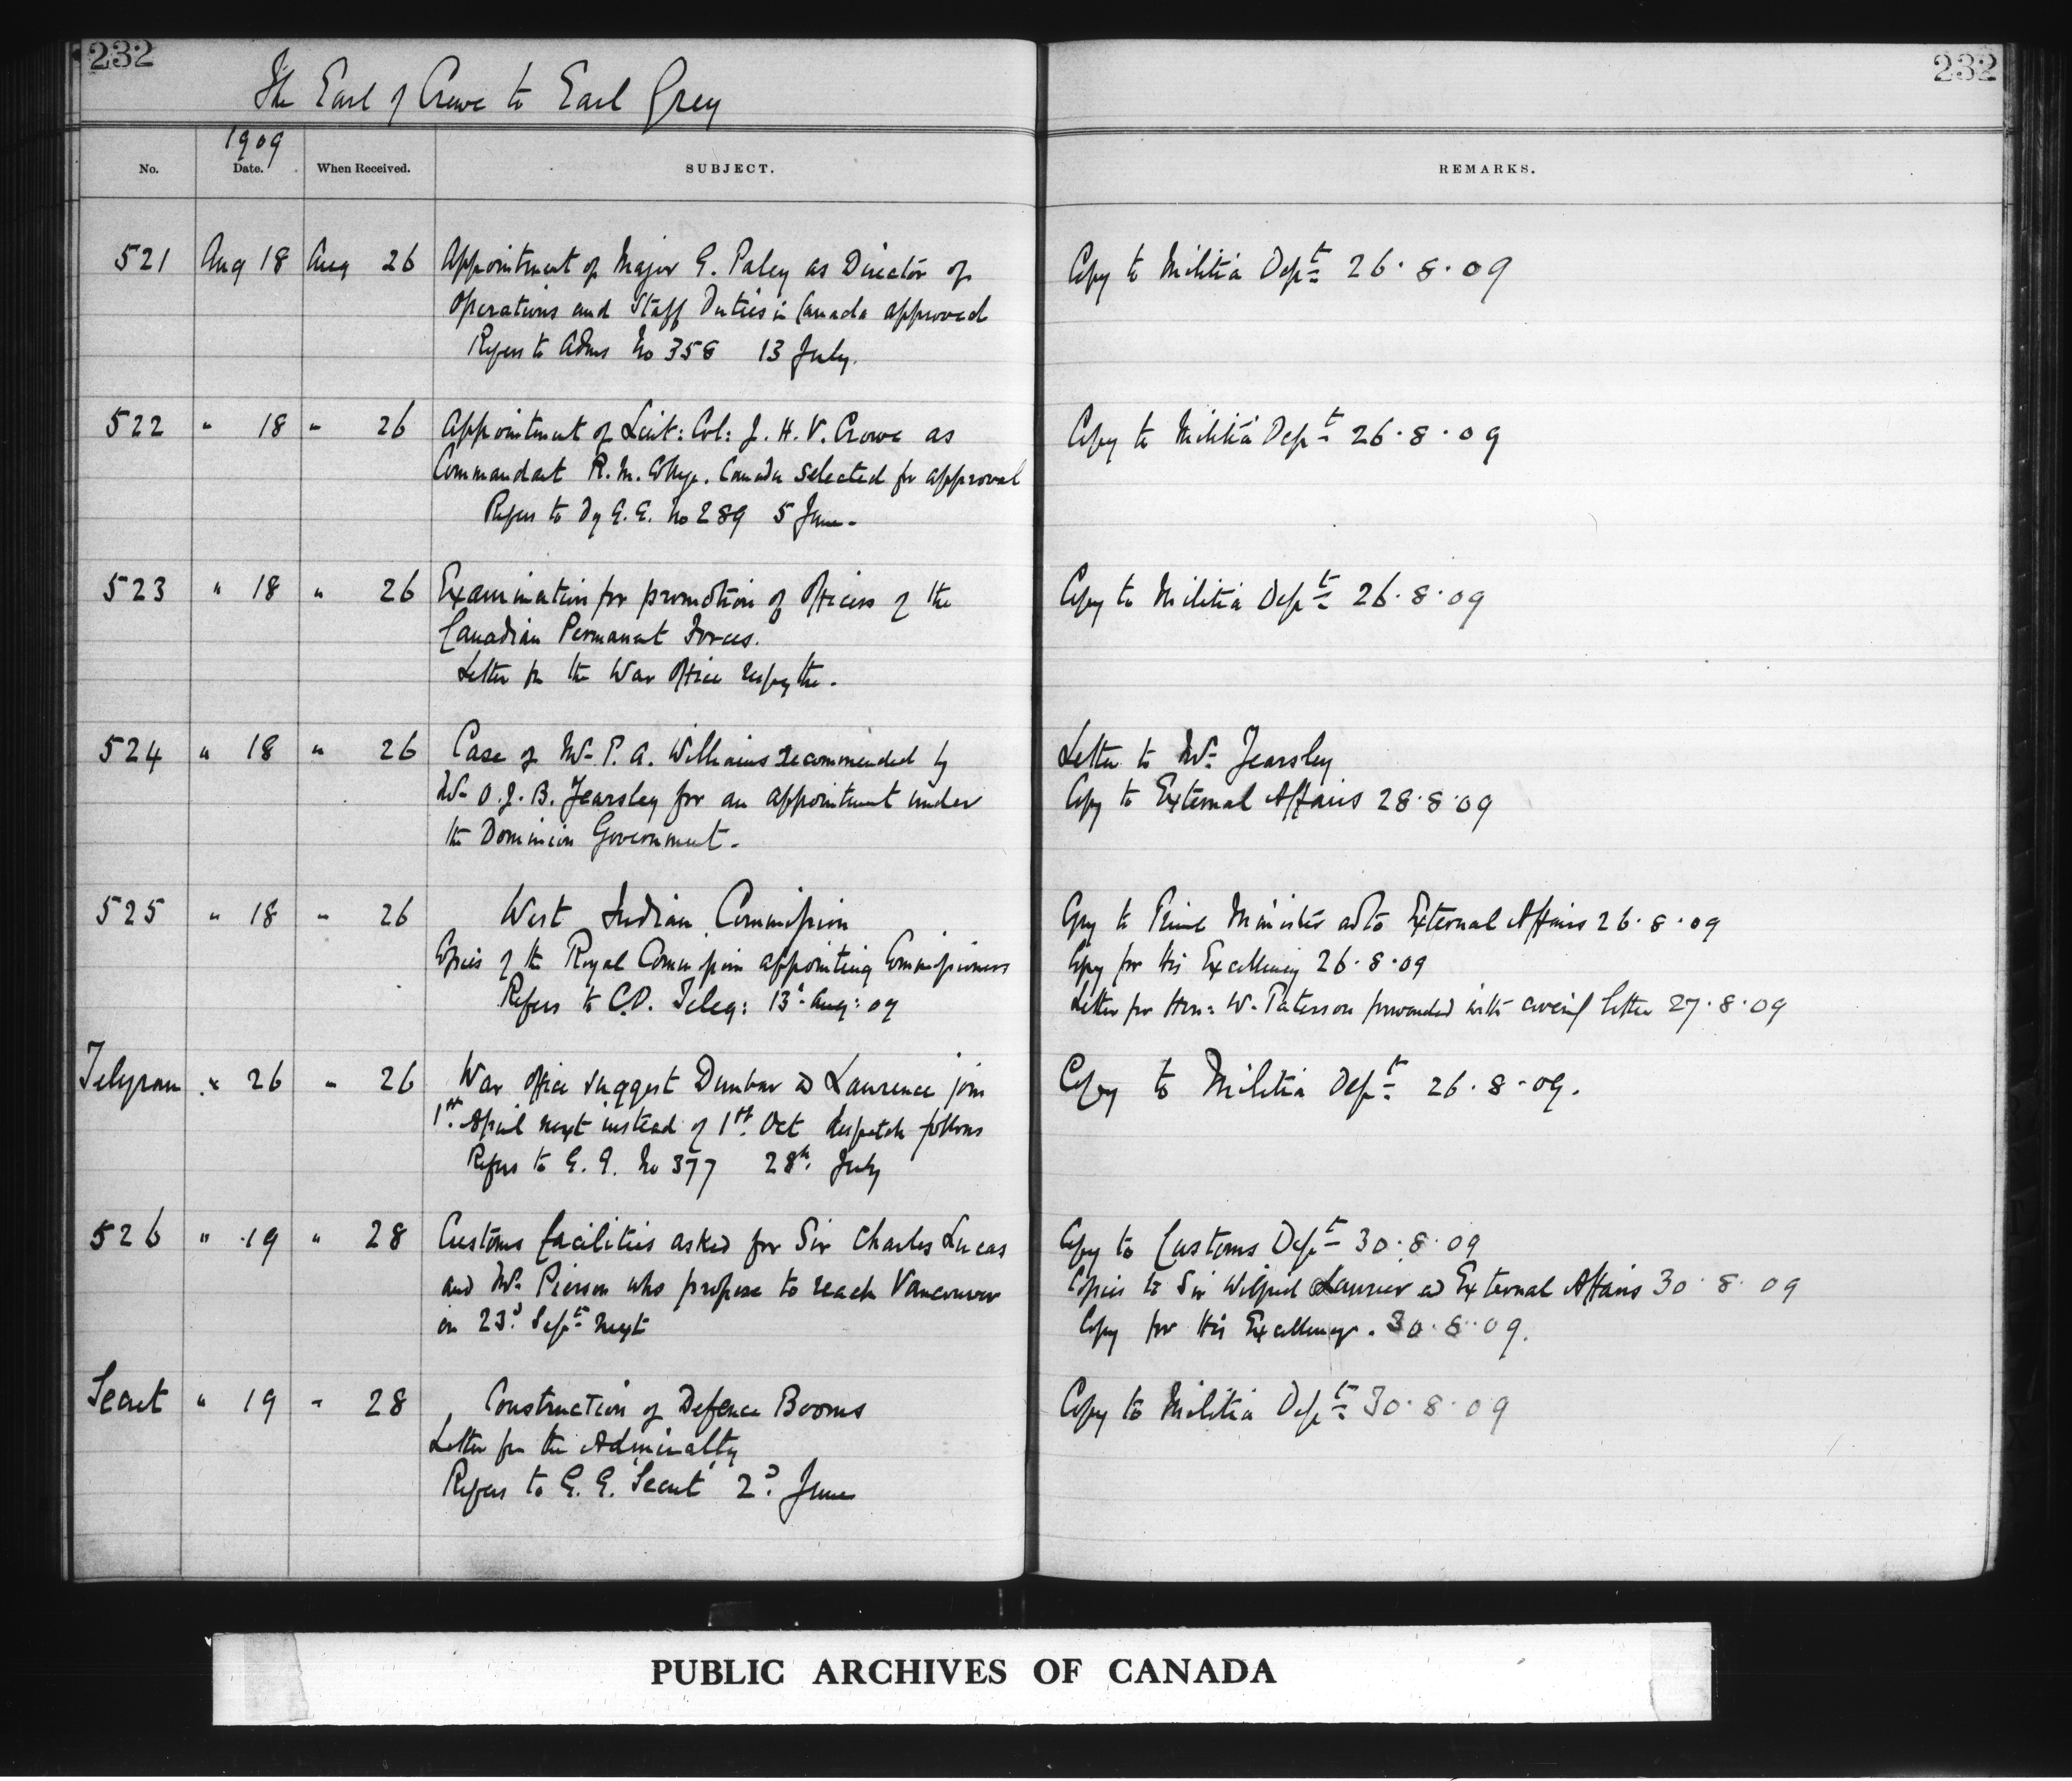 232
232
The Earl of Crewe to Earl Grey
1909
No. Date. When Received. SUBJECT. REMARKS.
521 Aug 18 Aug 26 Appointment of Major G. Paley as Director of Copy to Militia Dept 26.8.09
Operations and Staff Duties in Canada approved
Refers to Adms No 358 13 July.
522 " 18 " 26 Appointment of Lieut: Col: J. H. V. Crowe as Copy to Militia Dept 26.8.09
Commandant R. M. Canada selected for approval
Refers to Dy G. G. No 289 5 June.
523 " 18 " 26 Examination for promotion of Officers of the Copy to Militia Dept 26.8.09
Canadian Permanent Forces.
Letter fm the War Office
524 " 18 " 26 Case of Mr P. A. Williams recommended by Letter to Mr Fearsley
Mr O. J. B. Fearsley for an appointment under Copy to External Affairs 28.8.09
the Dominion Government.
525 " 18 " 26 West Indian Commission Copy to Prime Minister and to External Affairs 26.8.09
Copies of the Royal Commission appointing Commissioners Copy for His Excellency 26.8.09
Refers to C.O. Teleg: 13 Aug: 09 Letter for Hon: W. Paterson forwarded with letter 27.8.09
Telegram " 26 " 26 War Office suggest Dunbar and Laurence join Copy to Militia Dept 26.8.09.
1st April next instead of 1st Oct despatch follows
Refers to G. G. No 377 28th July
526 " 19 " 28 Customs facilities asked for Sir Charles Lucas Copy to Customs Dept 30.8.09
and Mr Pierson who propose to reach Vancouver Copies to Sir Wilfrid Laurier and External Affairs 30.8.09
on 23d Sept next Copy for His Excellency. 30.8.09.
Secret " 19 " 28 Construction of Defence Booms Copy to Militia Dept 30.8.09
Letter fm the Admiralty
Refers to G. G. 'Secret' 2d June
PUBLIC ARCHIVES OF CANADA